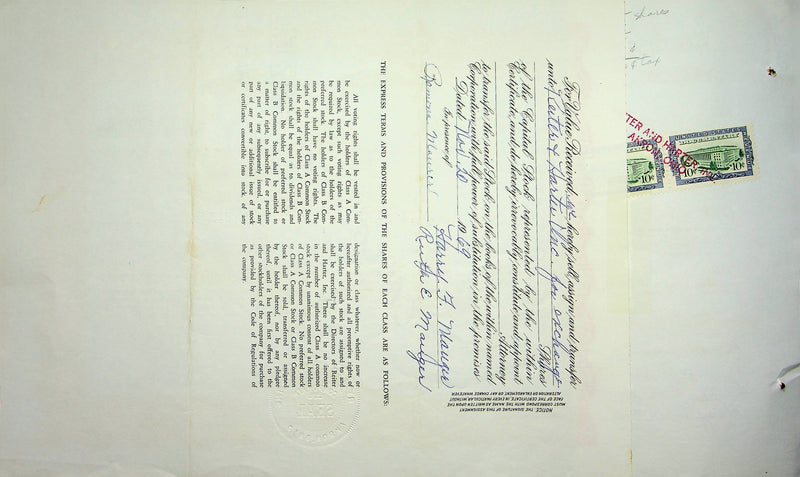 shares
For Value Received, we hereby sell, assign and transfer
unto Yetter & Harter, Inc. for exchange
Shares
of the Capital Stock represented by the within
Certificate, and do hereby irrevocably constitute and appoint
Attorney
to transfer the said Stock on the books of the within named
Corporation, with full power of substitution in the premises
Dated Nov. 20 1969
In presence of
Harry F. Mauger
Ramona Maurer Ruth E. Mauger
NOTICE. THE SIGNATURE OF THIS ASSIGNMENT
MUST CORRESPOND WITH THE NAME AS WRITTEN UPON THE
FACE OF THE CERTIFICATE, IN EVERY PARTICULAR, WITHOUT
ALTERATION OR ENLARGEMENT, OR ANY CHANGE WHATEVER.
TER AND HARTER
AKRON, OHIO
10c
10c
THE EXPRESS TERMS AND PROVISIONS OF THE SHARES OF EACH CLASS ARE AS FOLLOWS:
All voting rights shall be vested in and
be exercised by the holders of Class A Com-
mon Stock, except such voting rights as may
be required by law as to the holders of the
preferred stock. The holders of Class B Com-
mon Stock shall have no voting rights. The
rights of the holders of Class A Common Stock
and the rights of the holders of Class B Com-
mon stock shall be equal in to dividends and
liquidation. No holder of preferred stock or
Class B Common Stock shall be entitled as
a matter of right, to subscribe for or purchase
any part of any subsequently issued, or any
part of any new or additional issue of stock
or certificates convertible into stock of any
designation or class whatever, whether now or
hereafter authorized and all preemptive rights of
the holders of such stock are assigned to, and
shall be exercised by the Directors of Heiter
and Harter, Inc. There shall be no increase
in the number of authorized Class A common
stock except by unanimous consent of all holders
of Class A Common Stock. No preferred stock
or Class A Common Stock or Class B Common
Stock shall be sold, transferred or assigned
by the holder thereof, nor by any pledgee
thereof, until it has been first offered to the
other stockholders of the company for purchase
as provided by the Code of Regulations of
the company.